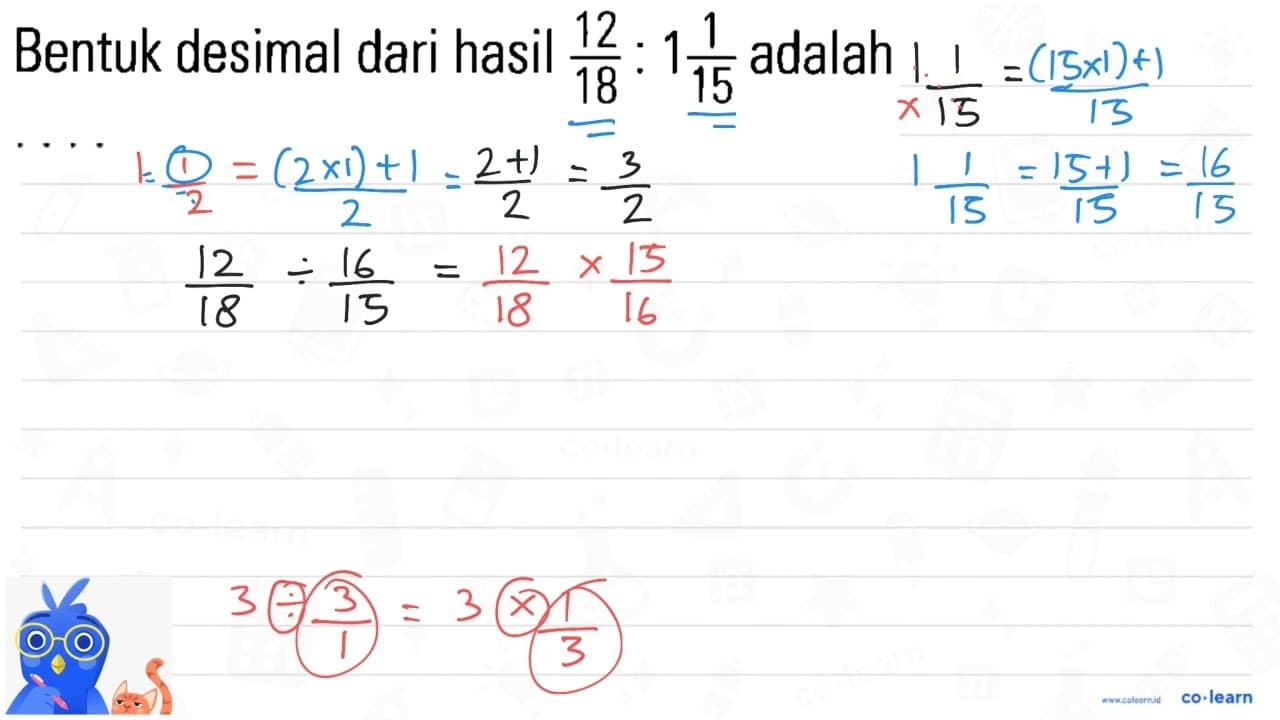 Bentuk desimal dari hasil 12/18 : 1 1/15 adalah
. . . .
1 1/15 = (15×1)+1/15
× 
1 1/2 = (2×1)+1/2 = 2+1/2 = 3/2
1 1/15 = 15+1/15 = 16/15
12/18 ÷ 16/15 = 12/18 × 15/16
3 ÷ 3/1 = 3 × 1/3
co·learn
co·learn
co·learn
co·learn
www.colearn.id co·learn